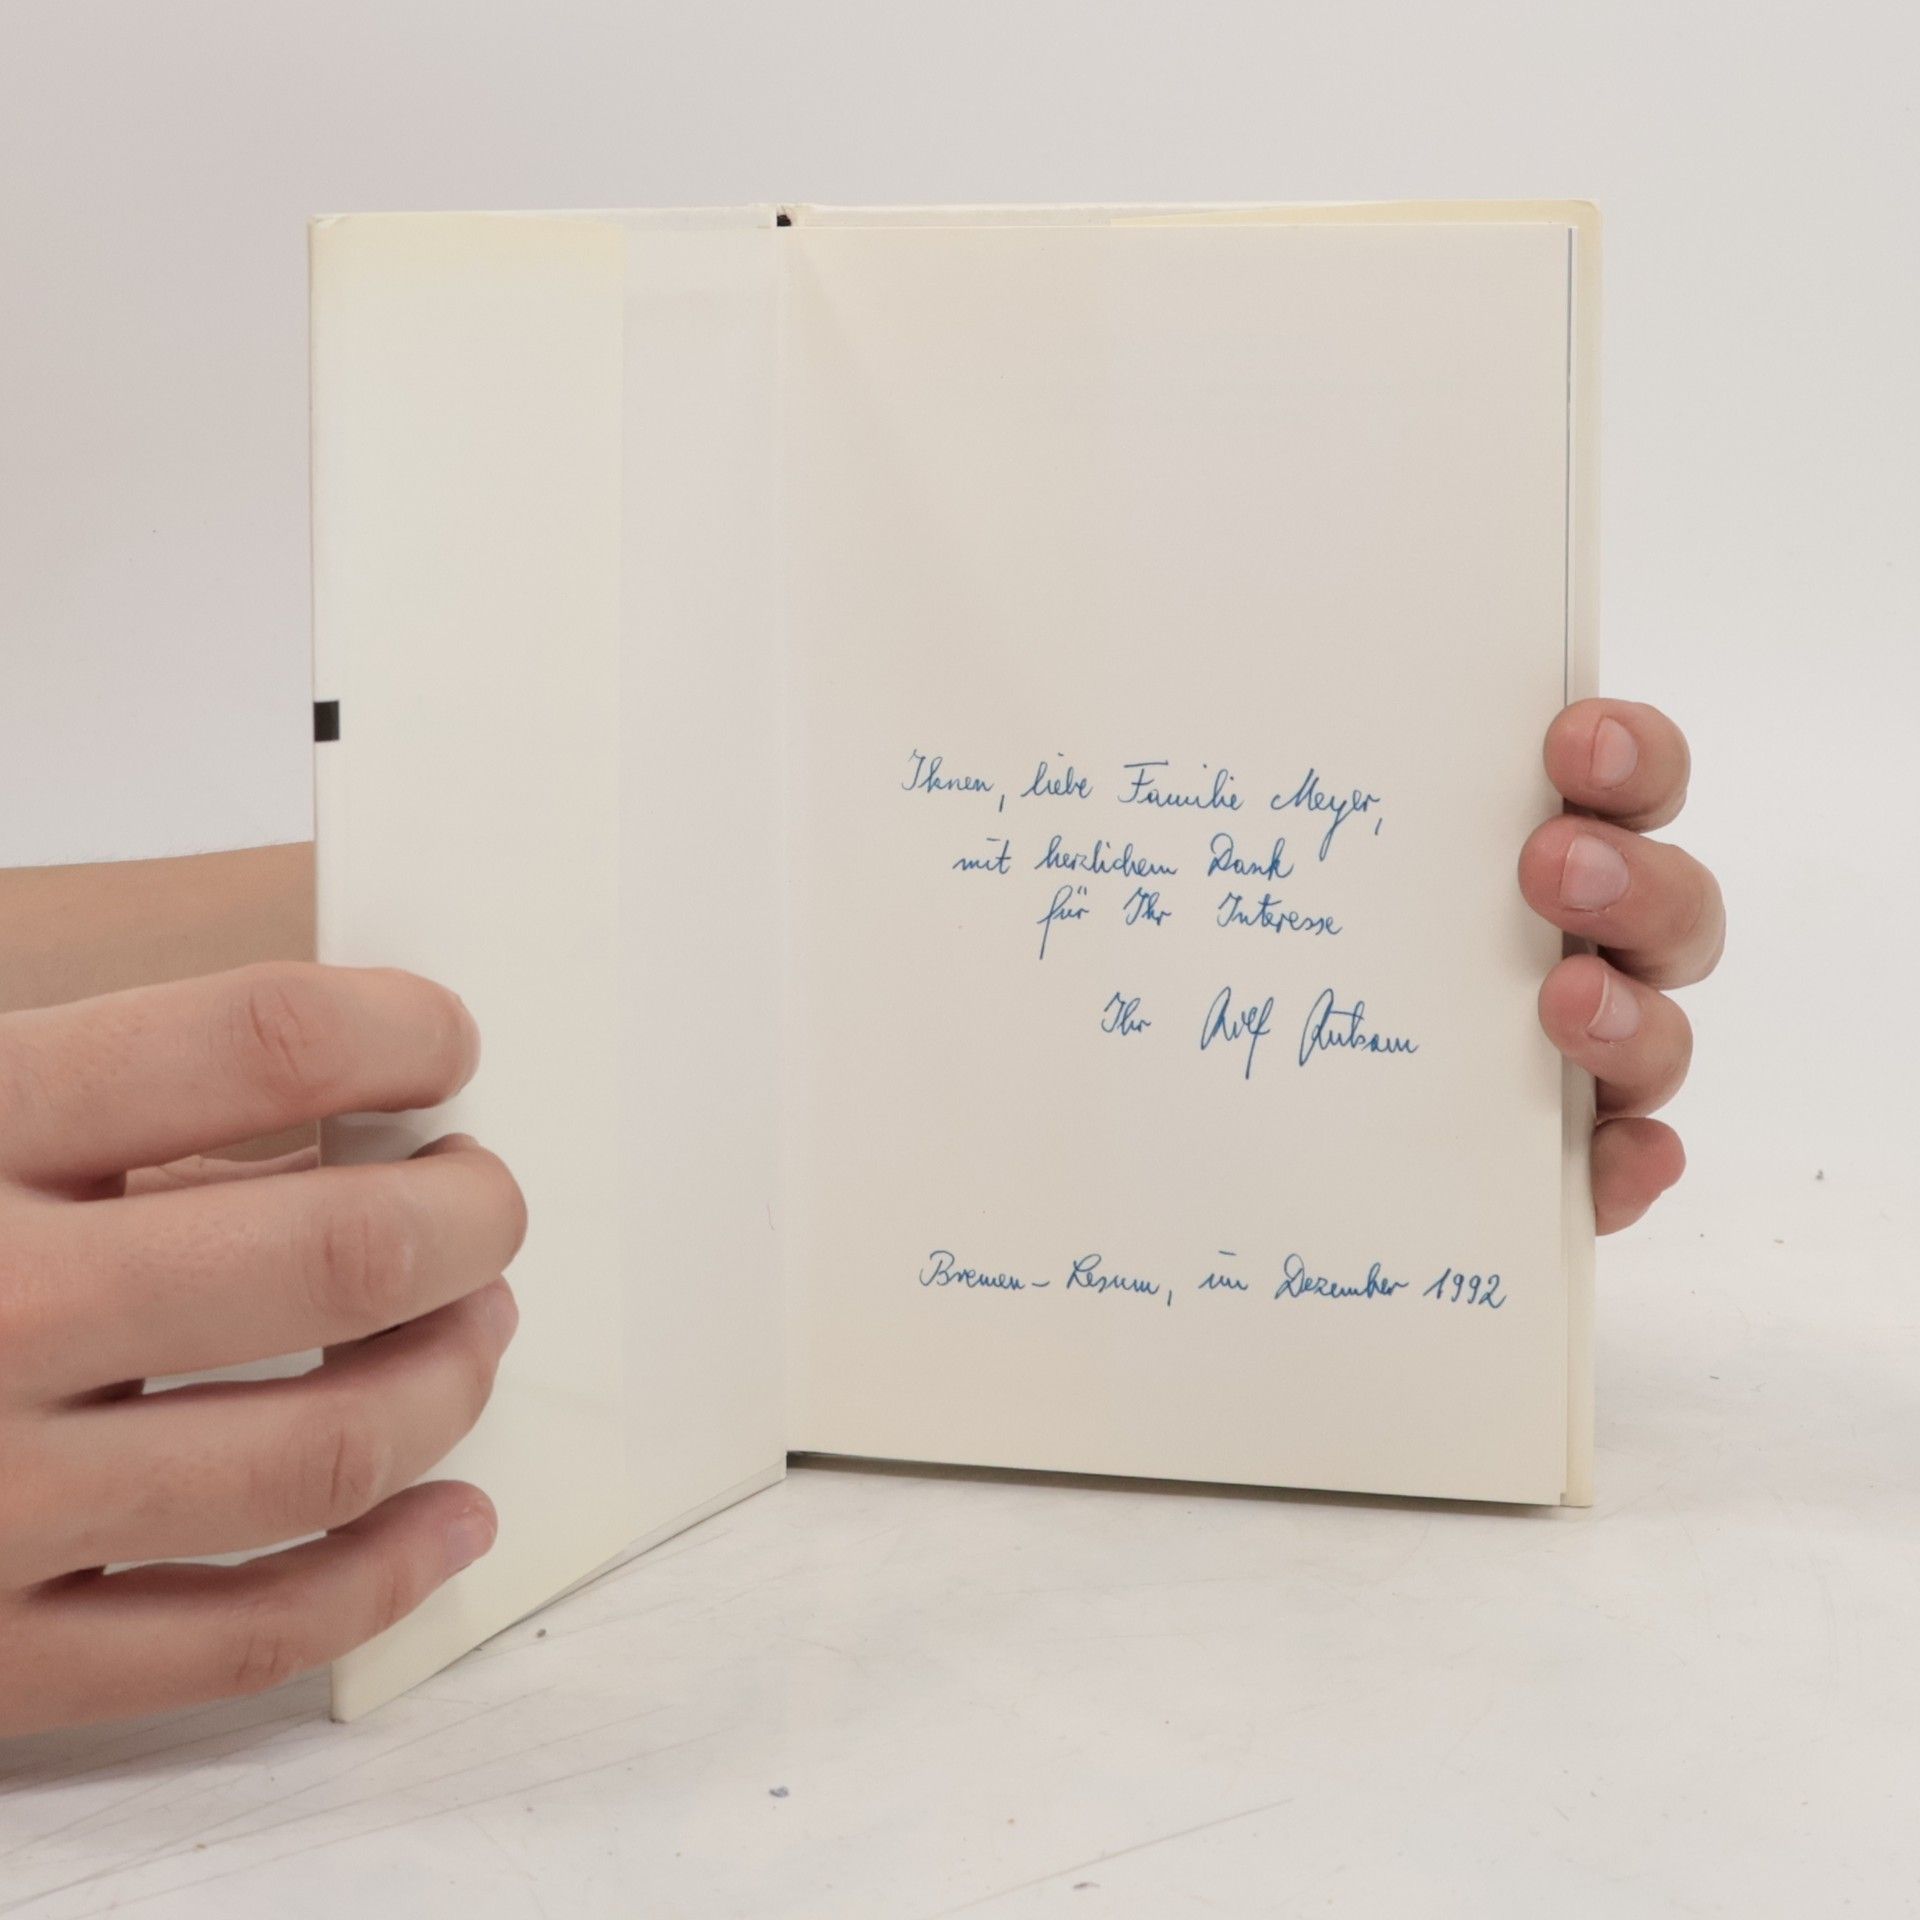 Ihnen, liebe Familie Meyer,
mit herzlichem Dank
für Ihr Interesse
Ihr Rolf
Bremen-Lesum, im Dezember 1992